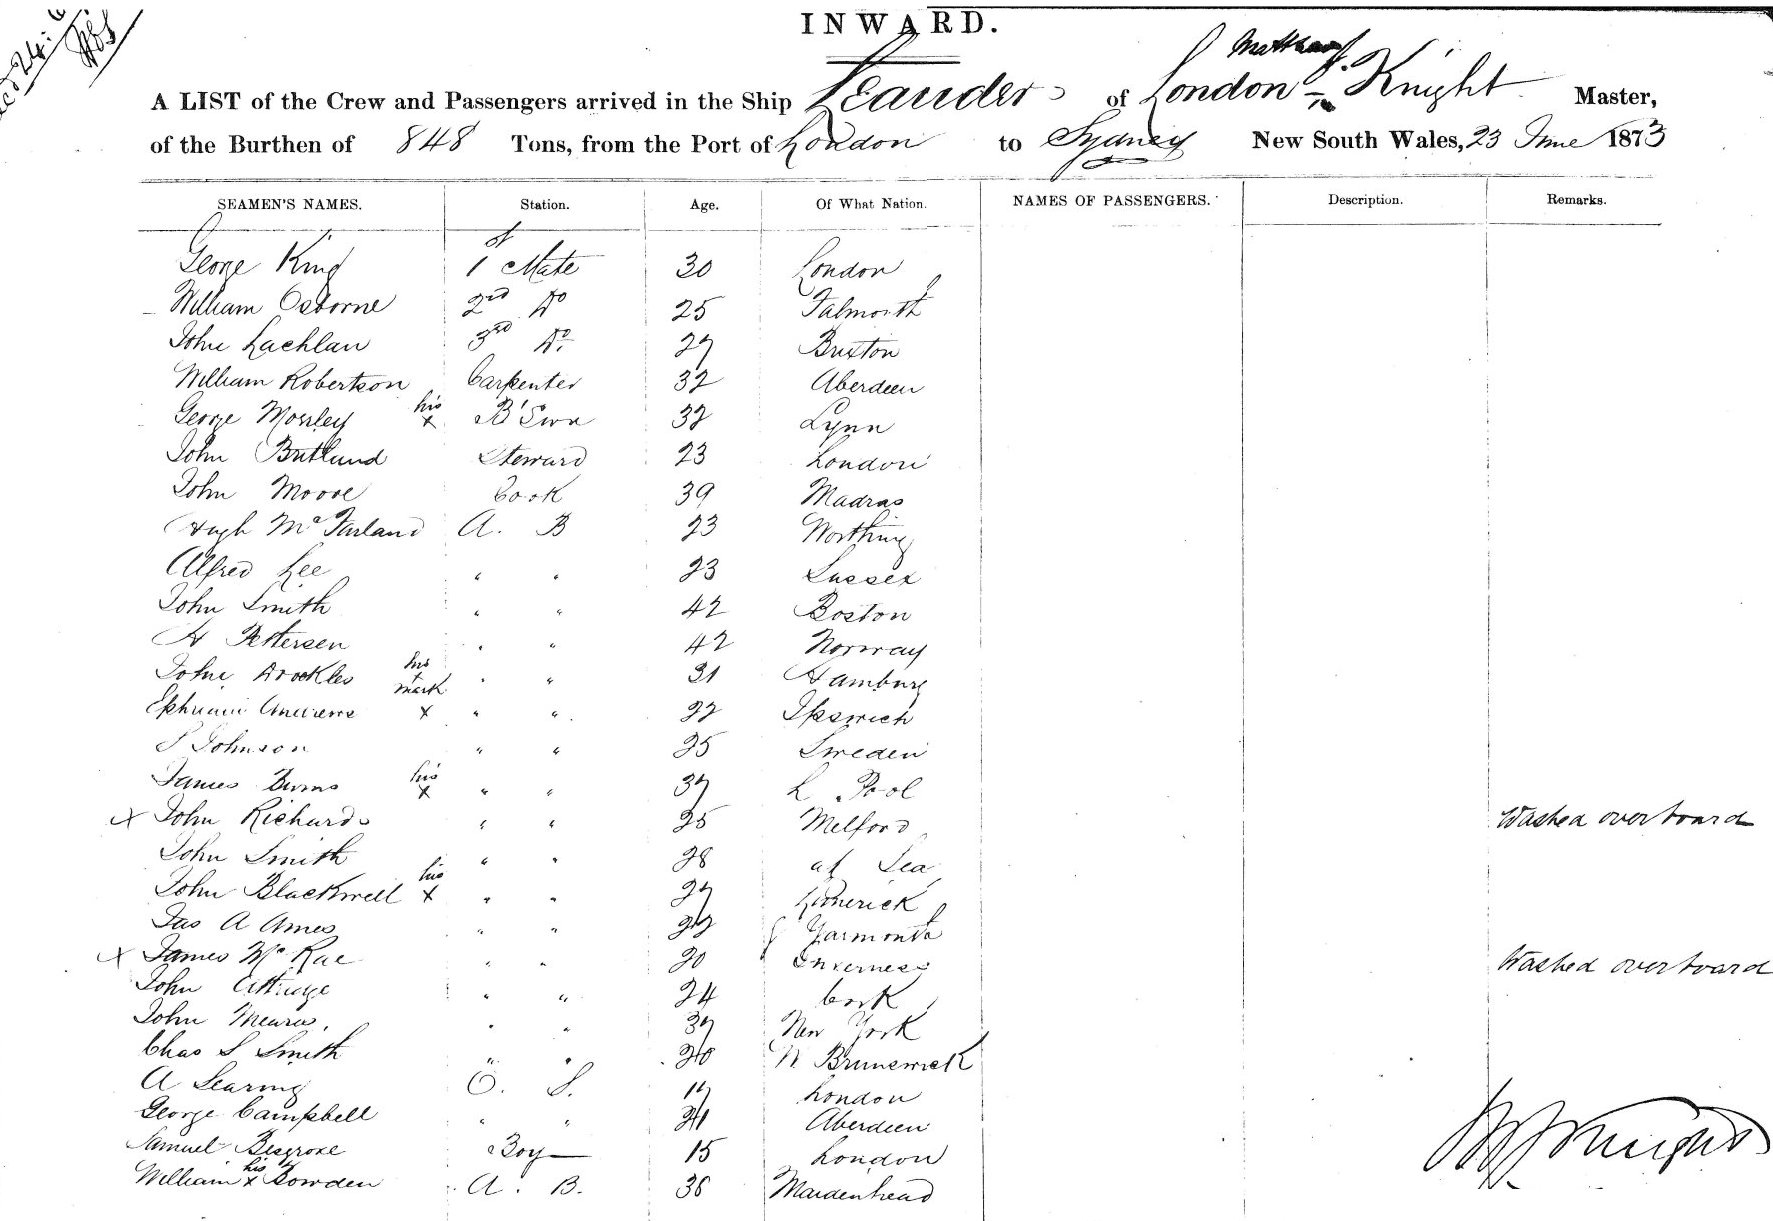 INWARD.
A LIST of the Crew and Passengers arrived in the Ship Leander of London Matthew J. Knight Master,
of the Burthen of 848 Tons, from the Port of London to Sydney New South Wales, 23 June 1873
SEAMEN'S NAMES. Station. Age. Of What Nation. NAMES OF PASSENGERS. Description. Remarks.
George King 1st Mate 30 London
William Osborne 2nd Do 25 Falmouth
John Lachlan 3rd Do. 27 Brixton
William Robertson Carpenter 32 Aberdeen
George Mosley his x B'Swn 32 Lynn
John Butland Steward 23 London
John Moore Cook 39 Madras
Hugh McFarland A. B 23 Worthing
Alfred Lee " " 23 Sussex
John Smith " " 42 Boston
H Pettersen " " 42 Norway
John his + mark " " 31 Hamburg
Ephraim Andrews x " " 22 Ipswich
S Johnson " " 25 Sweden
James Burns his x " " 37 L. Pool
x John Richards " " 25 Melford Washed overboard
John Smith " " 28 at Sea
John Blackwell his x " " 27 Limerick
Jas A Ames " " 22 G Yarmouth
x James McRae " " 20 Inverness Washed overboard
John Attridge " " 24 Cork
John Mears. " " 37 New York
Chas S Smith " " 20 N Brunswick
A Searing O. S. 17 London
George Campbell " " 21 Aberdeen
Samuel Besgrove Boy 15 London
William his x Bowden A. B. 36 Maidenhead
M J Knight